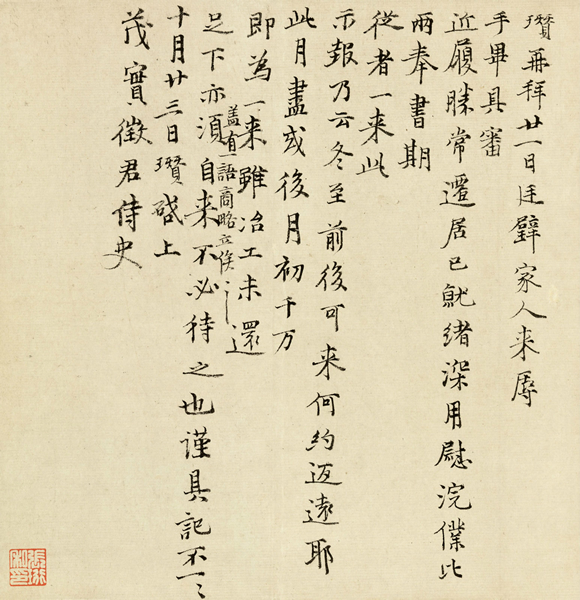 瓚再拜廿一日廷璧家人来辱
手畢具審
近履勝常遷居已就緒深用慰浣僕比
兩奉書期
從者一来此
示報乃云冬至前後可来何約迺遠耶
此月盡或後月初千万
即為一来雖冶工未還
盖有一語商略立俟〻
足下亦須自来不必待之也謹具記不一〻
十月廿三日瓚啓上
茂實徵君侍史
張珩私印